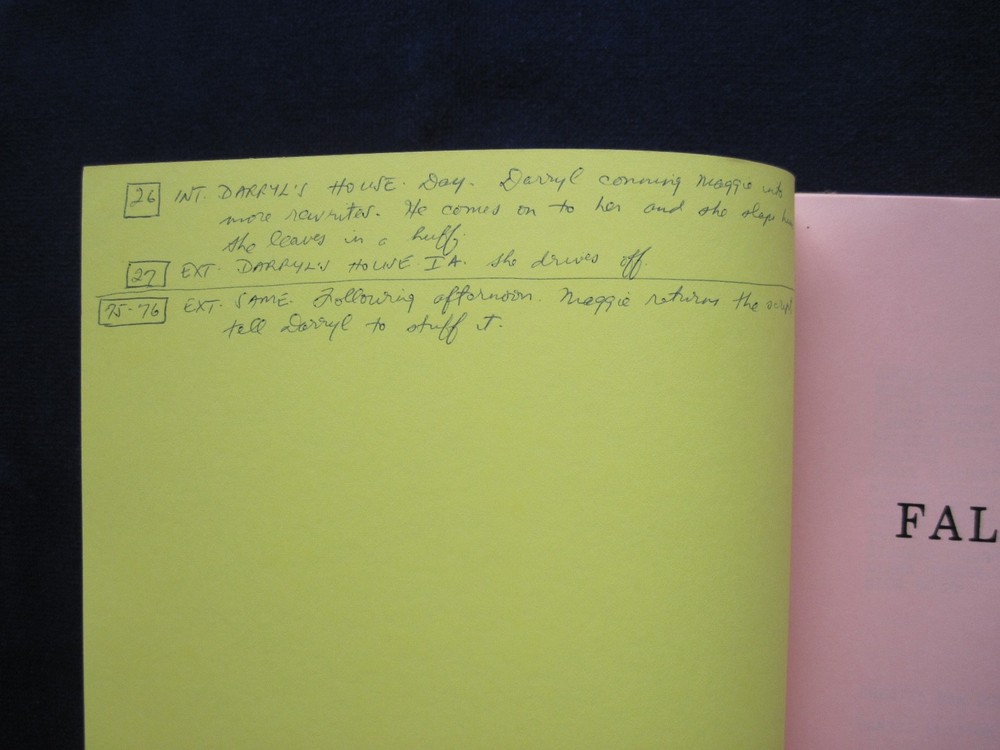 26 INT. DARRYL'S HOUSE. Day. Darryl conning Maggie into
more rewrites. He comes on to her and she slaps
she leaves in a huff.
27 EXT. DARRYL'S HOUSE. she drives off.
75-76 EXT. SAME. Following afternoon. Maggie returns the script
tell Darryl to stuff it.
FAL